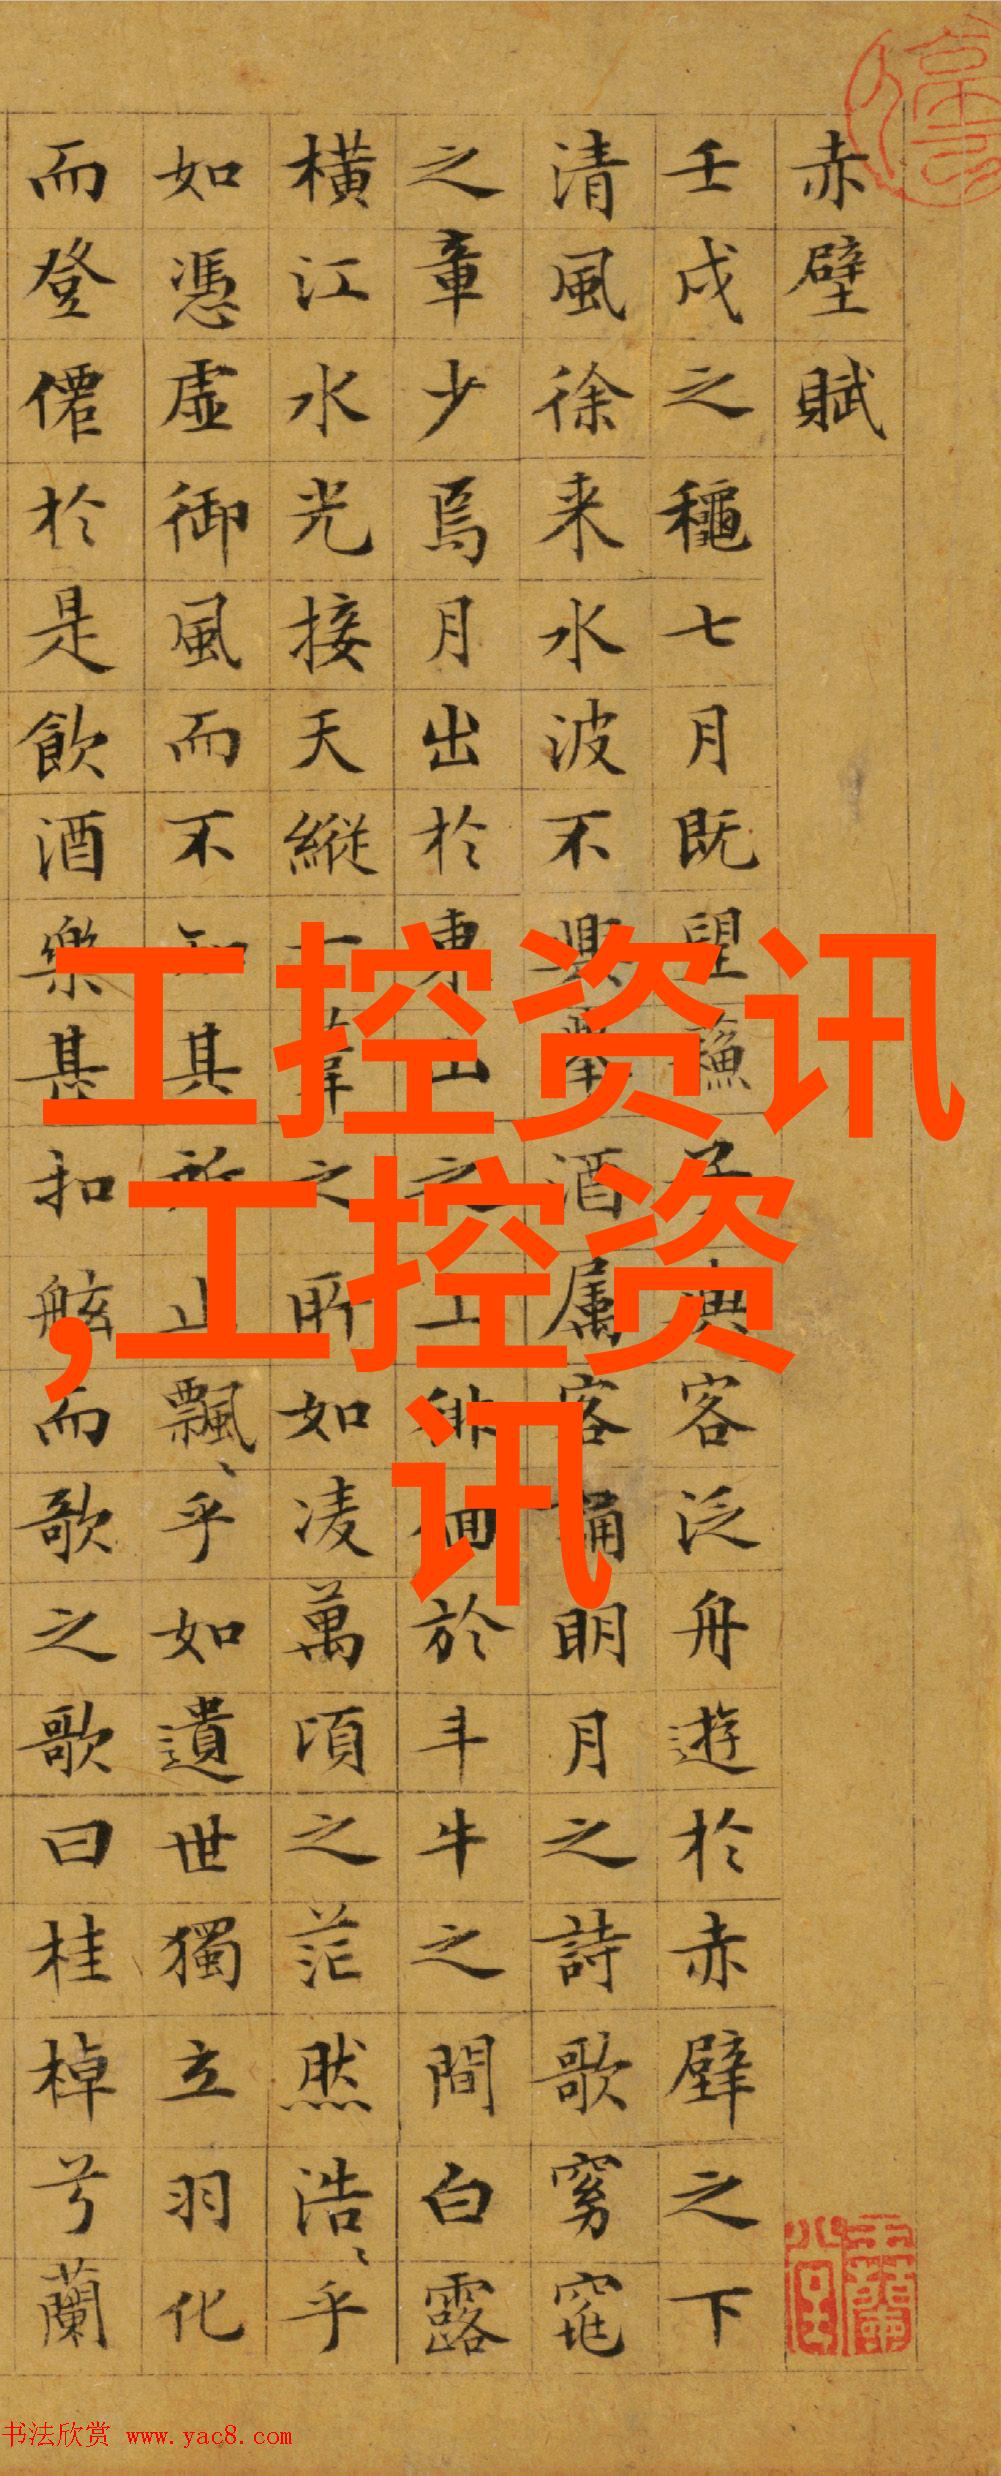 赤壁賦
壬戌之穐七月既望蘓子與客泛舟遊於赤壁之下
清風徐来水波不興舉酒属客誦明月之詩歌窈窕
之章少焉月出於東山之上徘徊於斗牛之間白露
橫江水光接天縱一葦之所如凌萬頃之茫然浩〻乎
如憑虛御風而不知其所止飄〻乎如遺世獨立羽化
而登僊於是飲酒樂甚扣舷而歌之歌曰桂棹兮蘭
工控资讯
,工控资
讯
书法欣赏 www.yac8.com